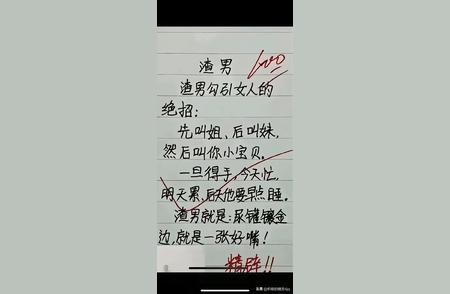 渣男
100
渣男勾引女人的
绝招:
先叫姐、后叫妹,
然后叫你小宝贝。
一旦得手,今天忙,
明天累,后天他要早点睡。
渣男就是:尿罐镶金
边,就是一张好嘴!
精辟!!